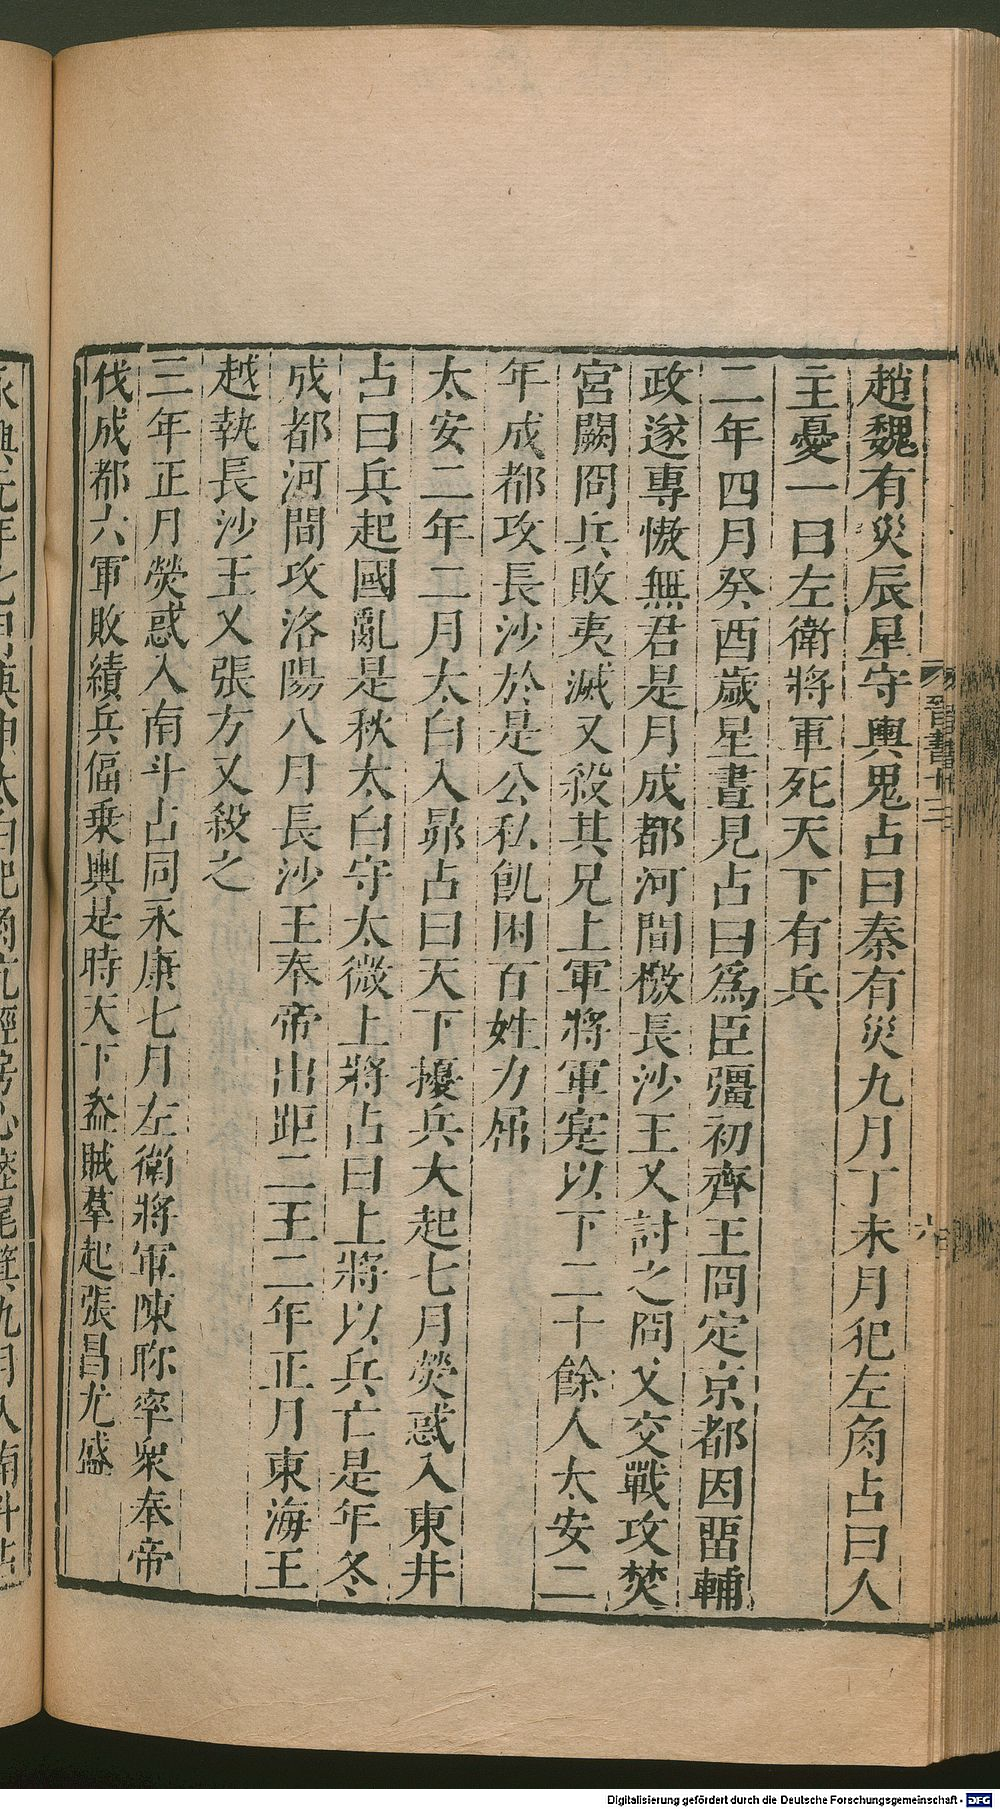 趙魏有災辰星守輿鬼占曰秦有災九月丁未月犯左角占曰人
主憂一曰左衛將軍死天下有兵
二年四月癸酉歲星晝見占曰爲臣彊初齊王冏定京都因畱輔
政遂專慠無君是月成都河間檄長沙王乂討之冏乂交戰攻焚
宮闕冏兵敗夷滅又殺其兄上軍將軍寔以下二十餘人太安二
年成都攻長沙於是公私飢困百姓力屈
太安二年二月太白入昴占曰天下擾兵大起七月熒惑入東井
占曰兵起國亂是秋太白守太微上將占曰上將以兵亡是年冬
成都河間攻洛陽八月長沙王奉帝出距二王二年正月東海王
越執長沙王乂張方又殺之
三年正月熒惑入南斗占同永康七月左衛將軍陳眕率衆奉帝
伐成都六軍敗績兵偪乗輿是時天下盗賊羣起張昌尤盛
晉書卌三
六
永興元年七月庚申太白犯角亢經房心歷尾箕九月入南斗占
Digitalisierung gefördert durch die Deutsche Forschungsgemeinschaft - DFG